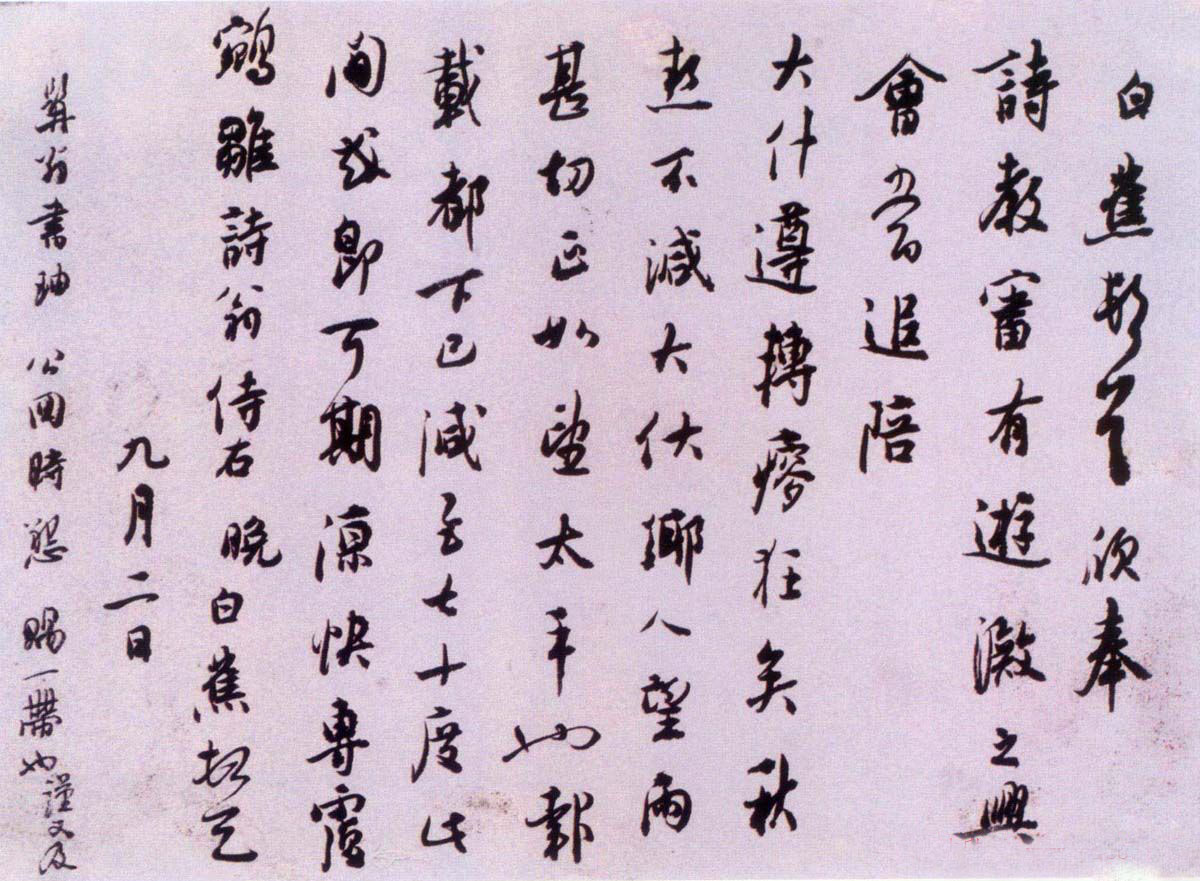 白蕉頓首欣奉
詩教審有遊激之興
會當追陪
大什遵轉瘳狂矣秋
熱不減大伏鄉人望雨
甚切正如望太平也報
載都下已減至七十度此
間或即可期涼快專覆
鵷雛詩翁侍右 晚白蕉頓首
九月二日
算翁書 公回時懇 賜一帶也謹又及